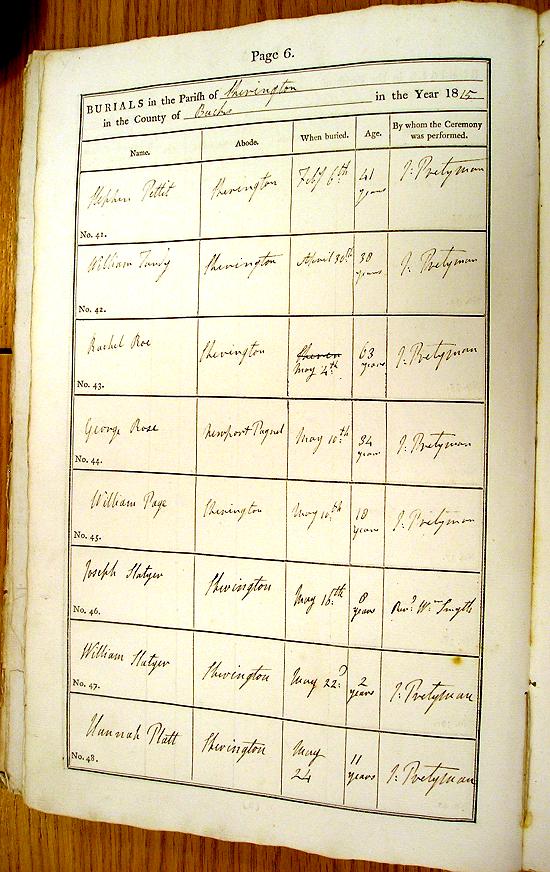 Page 6.
BURIALS in the Parish of Sherington
in the County of Bucks in the Year 1815
Name. Abode. When buried. Age. By whom the Ceremony was performed.
Stephen Pettit Sherington Feby 6th 41 years J: Pretyman
No. 41.
William Sherington April 30th 38 years J: Pretyman
No. 42.
Rachel Roe Sherington May 4th 63 years J: Pretyman
No. 43.
George Rose Newport Pagnel May 10th 34 years J: Pretyman
No. 44.
William Page Sherington May 10th 18 years J: Pretyman
No. 45.
Joseph Slatyer Sherington May 16th 8 years Revd. Wm Smyth
No. 46.
William Slatyer Sherington May 22d 2 years J: Pretyman
No. 47.
Hannah Platt Sherington May 24 11 years J: Pretyman
No. 48.